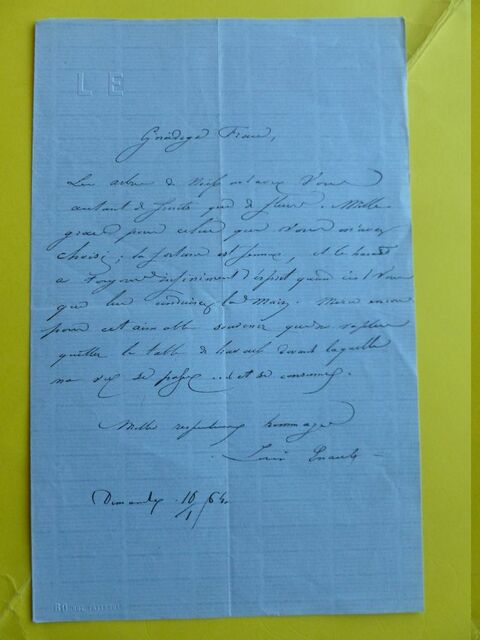 L E
Gnädige Frau,
Les arbres de Noël ont avec Vous
autant de fruits que de fleurs. Mille
graces pour celui que Vous m'avez
choisi ; la fortune est femme, et le hasard
a toujours infiniment d'esprit quand c'est Vous
que lui conduisez la Main. Merci encore
pour cet aimable souvenir qui ne
quitter la table de travail devant laquelle
ma vie se passe ... et se consume.
Mille respectueux hommages
Louis Enault
Dimanche 10/1/64